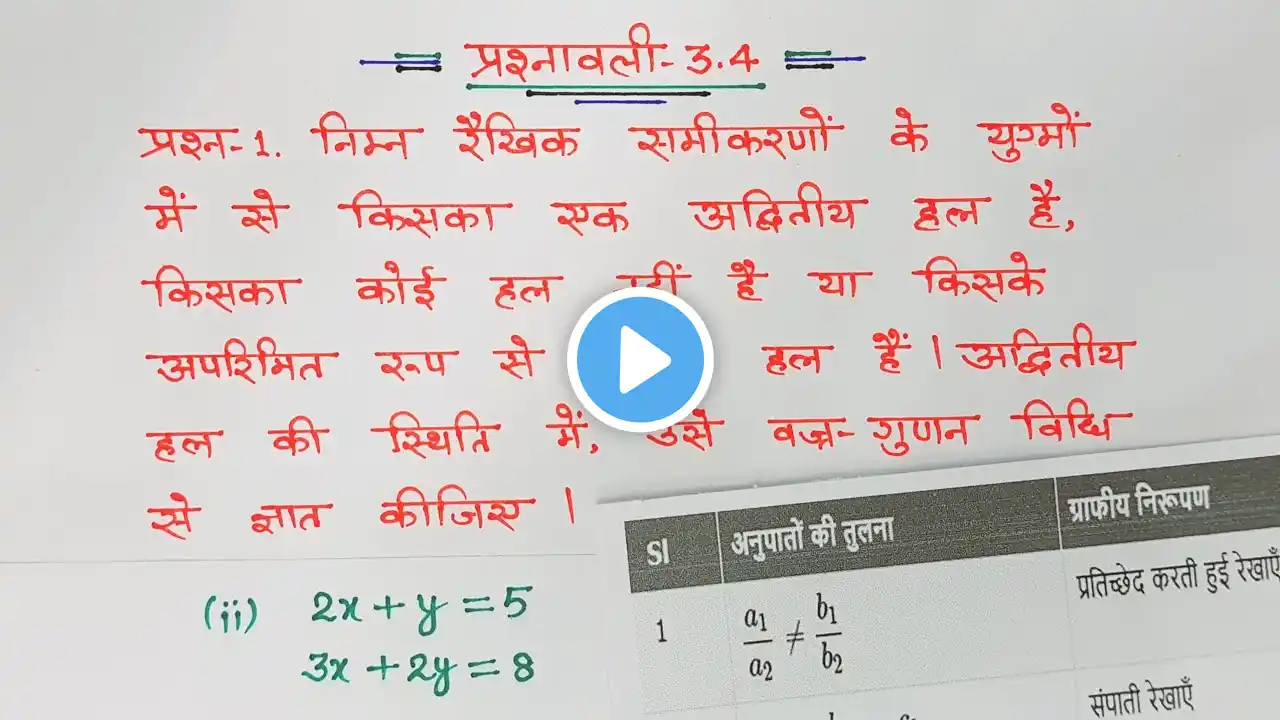 प्रश्नावली-3.4
प्रश्न-1. निम्न रैखिक समीकरणों के युग्मों
में से किसका एक अद्वितीय हल है,
किसका कोई हल नहीं है या किसके
अपरिमित रूप से हल हैं। अद्वितीय
हल की स्थिति में, उसे वज्र-गुणन विधि
से ज्ञात कीजिए।
(ii) 2x + y = 5
3x + 2y = 8
Sl अनुपातों की तुलना ग्राफीय निरूपण
1 a₁/a₂ ≠ b₁/b₂ प्रतिच्छेद करती हुई रेखाएँ
संपाती रेखाएँ